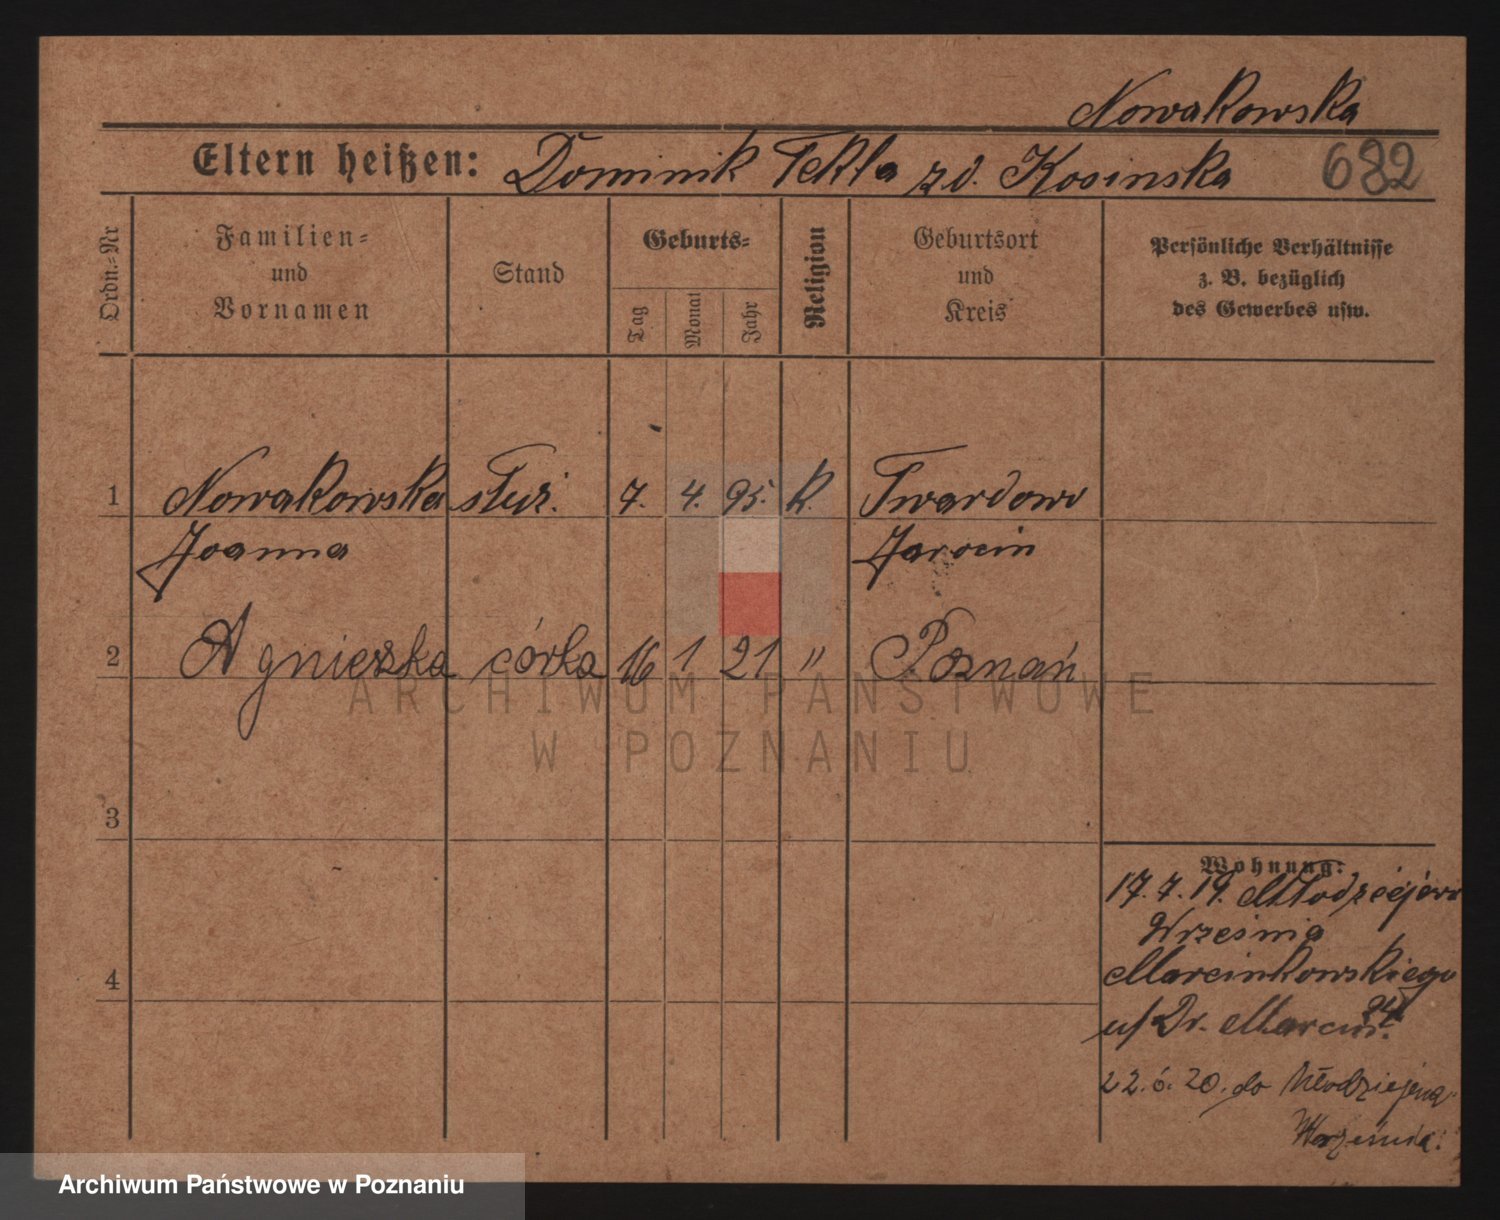 Nowakowska
Eltern heißen: Dominik Tekla zd. Kosinska 682
Ordn.=Nr
Familien=
und
Vornamen
Stand
Geburts=
Tag
Monat
Jahr
Religion
Geburtsort
und
Kreis
Persönliche Verhältnisse
z. B. bezüglich
des Gewerbes usw.
1 Nowakowska służ. 7. 4. 95. k. Twardowo
Joanna Jarocin
2 Agnieszka córka 16 1 21 " Poznań
ARCHIWUM PAŃSTWOWE
W POZNANIU
3
Wohnung:
17. 7. 19. Młodziejewo
Września
4
Marcinkowskiego
24
u/ Dr. Marcin.
22. 6. 20. do
Września.
Archiwum Państwowe w Poznaniu